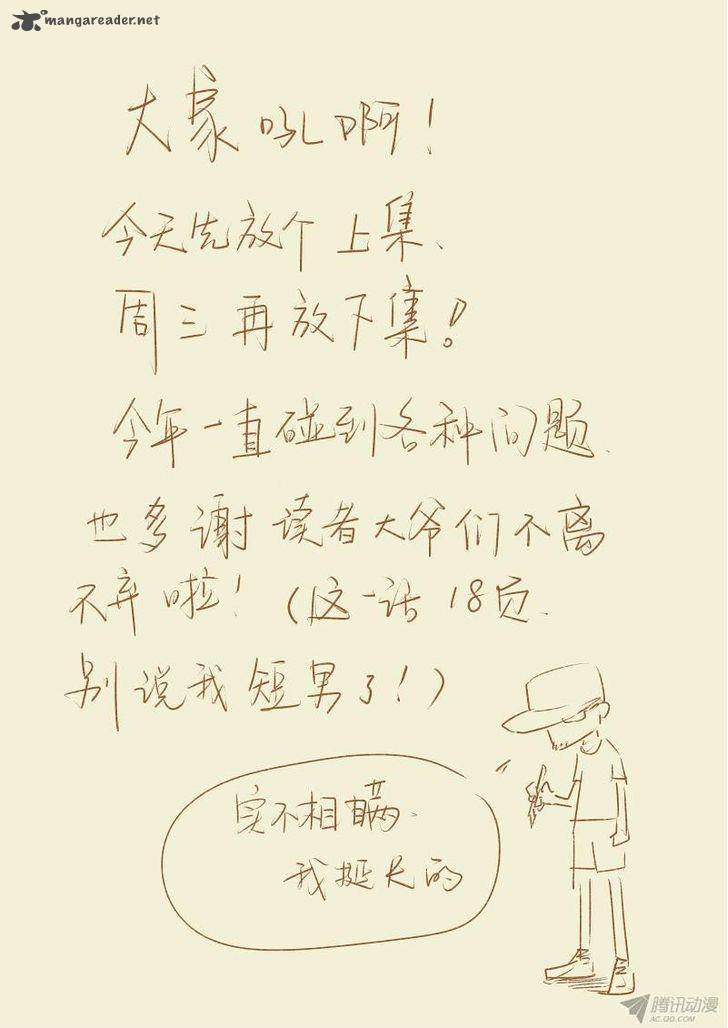 mangareader.net
大家吼啊！
今天先放个上集、
周三再放下集！
今年一直碰到各种问题、
也多谢读者大爷们不离
不弃啦！（这一话18页、
别说我短男了！）
实不相瞒、
我挺长的
腾讯动漫
AC.QQ.COM